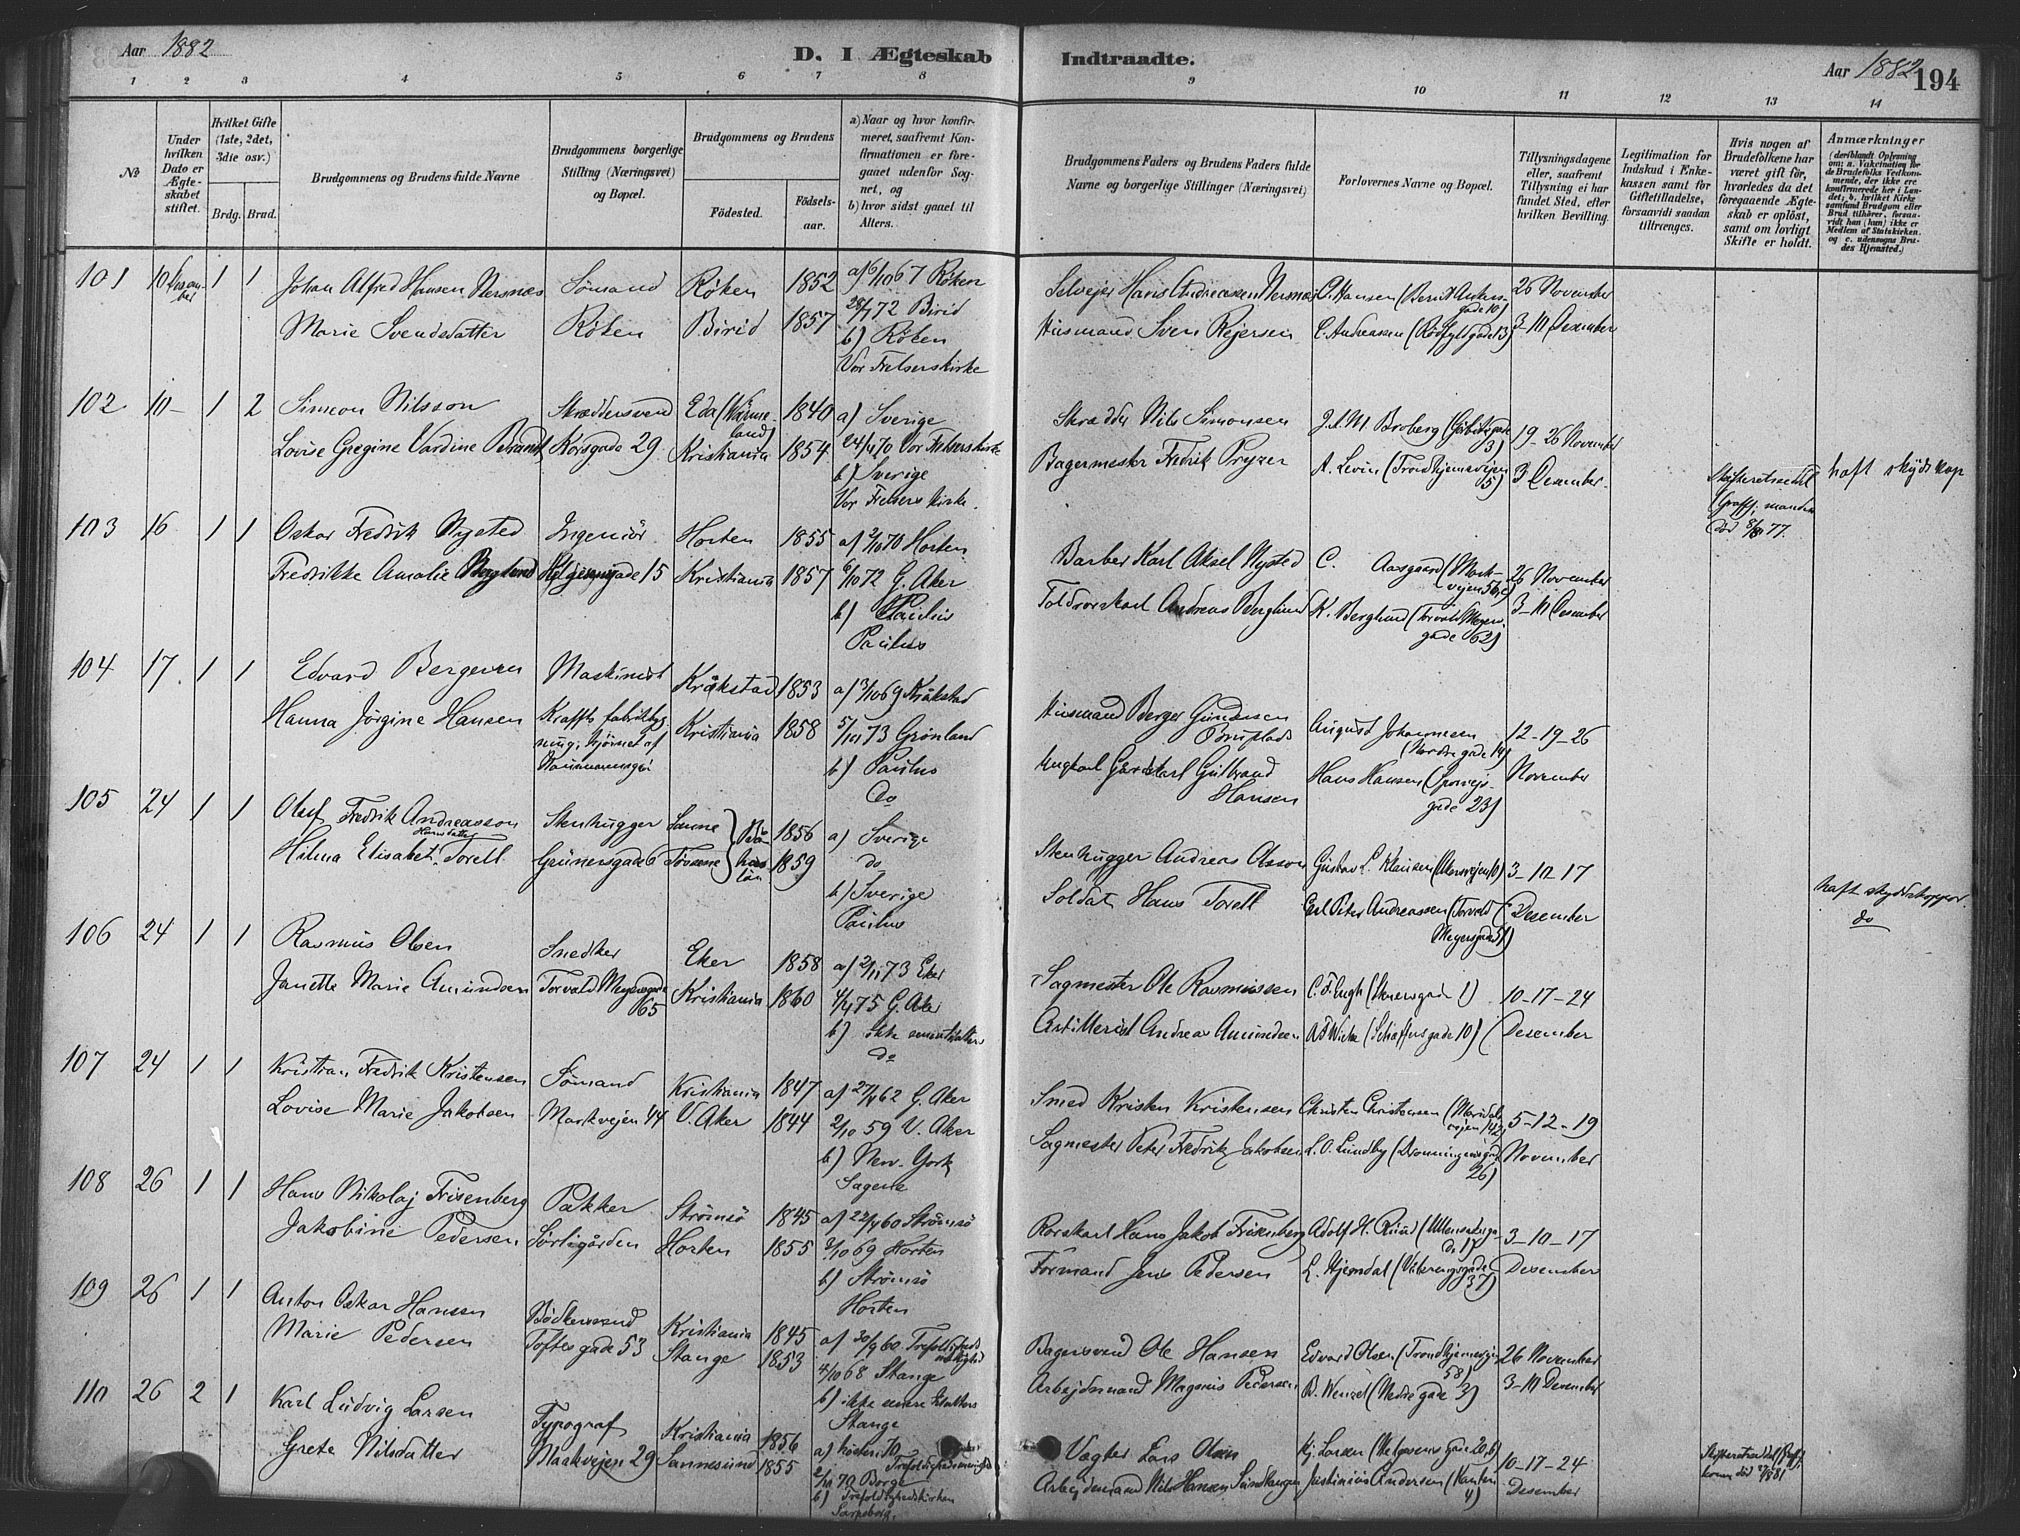 Aar 1882
D. I Ægteskab Indtraadte.
Aar 1882
194
1 2 3 4 5 6 7 8 9 10 11 12 13 14
№
Under hvilken Dato er Ægteskabet stiftet.
Hvilket Gifte (1ste, 2det, 3die osv.)
Brdg. Brud.
Brudgommens og Brudens fulde Navne
Brudgommens borgerlige Stilling (Næringsvei) og Bopæl.
Brudgommens og Brudens
Fødested.
Fødselsaar.
a) Naar og hvor konfirmeret, saafremt Konfirmationen er foregaaet udenfor Sognet, og
b) hvor sidst gaaet til Alters.
Brudgommens Faders og Brudens Faders fulde Navne og borgerlige Stillinger (Næringsvei)
Forlovernes Navne og Bopæl.
Tillysningsdagene eller, saafremt Tillysning ei har fundet Sted, efter hvilken Bevilling.
Legitimation for Indskud i Enkekassen samt for Giftetilladelse, forsaavidt saadan tiltrænges.
Hvis nogen af Brudefolkene har været gift før, hvorledes da det foregaaende Ægteskab er opløst, samt om lovligt Skifte er holdt.
Anmærkninger
101 10 Desember 1 1 Johan Alfred Hansen Nersnæs Sömand Röken 1852 a) 6/10 67 Röken
Marie Svendsdatter Röken Birid 1857 72 Birid
b) Röken
Vor Frelserskirke
Selveier Hans Andreassen Nersnæs O. Hansen (Bernt Ankersgade 10) 26 November
Husmand Sven Reiersen C. Andreassen (Rödfyldgade 13) 3-10 Desember
102 10 – 1 2 Simeon Nilsson Skræddersvend Eda (Värmeland) 1840 a) Sverige
Lovise Gregine Vardine Brandt Korsgade 29 Kristiania 1854 24/4 70 Vor Frelserskirke
b) Sverige
Vor Frelsers Kirke.
Skrædder Nils Simonsen J. A. M. Broberg 3) 19-26 November
Bagermester Fredrik Preyzer A. Levin (Trondhjemsvejen 5) 3 Desember.
haft skydskop
103 16 1 1 Oskar Fredrik Nysted Ingeniör Horten 1855 a) 2/10 70 Horten
Fredrikke Amalie Berglund Helgesensgade 15 Kristiania 1857 6/10 72 G. Aker
b) Paulus
Paulus
Barber Karl Aksel Nysted C. Aasgaard (Markvejen 56,c) 26 November
Toldrorskarl Andreas Berglund K. Berglund (Torvald Meyersgade 62) 3-10 Desember
104 17 1 1 Edvard Bergersen Maskinist Kråkstad 1853 a) 3/10 69 Kråkstad
Hanna Jörgine Hansen Kraffts fabrikbygning, hjörnet af Kristiania 1858 5/10 73 Grönland
b) Paulus
Do
Husmand Berger Gundersen August Johannesen (Nordregade 14) 12-19-26
Gårdskarl Gulbrand Hansen Hans Hansen (Sporvejsgade 23) November
105 24 1 1 Oluf Fredrik Andreasson Stenhugger Sanne 1856 a) Sverige
Hilma Elisabet Hansdatter Torell Grünersgade 6 Tossene Båhuslän 1859 do
b) Sverige
Paulus
Stenhugger Andreas Olsson Gustav L. Klausen (Akersvejen 10) 3-10-17
Soldat Hans Torell Carl Peter Andreassen (Torvald Meyersgade 51) Desember
haft skydskopper
do
106 24 1 1 Rasmus Olsen Snedker Eker 1858 a) 2/11 73 Eker
Janette Marie Amundsen Torvald Meyersgade 65 Kristiania 1860 4/4 75 G. Aker
b) Ikke
do
Sagmester Ole Rasmussen C. F. Engh (Akersgade 1) 10-17-24
Artillerist Andreas Amundsen A. Wicke (Schaffersgade 10) Desember
107 24 1 1 Kristian Fredrik Kristensen Sömand Kristiania 1847 a) 27/4 62 G. Aker
Lovise Marie Jakobsen Markvejen 44 V. Aker 1844 2/10 59 V. Aker
b) New-York
Sagene
Smed Kristen Kristensen Christen Christensen (Maridalsvejen 142) 5-12-19
Sagmester Peter Fredrik Jakobsen L. O. Lundby (Dronningensgade 26) November
108 26 1 1 Hans Nikolaj Frisenberg Pakker Strömsö 1845 a) 22/4 60 Strömsö
Jakobine Pedersen Sörligården Horten 1855 3/10 69 Horten
b) Strömsö
Horten
Rorskarl Hans Jakob Frisenberg Adolf H. Ruud 3-10-17
Formand Jens Pedersen L. Hjemdal (Vaterengsgade 37) Desember
109 26 1 1 Anton Oskar Hansen Bödkersvend Kristiania 1845 a) 30/9 60 Trefoldigheds menighed
Marie Pedersen Toftesgade 53 Stange 1853 4/10 68 Stange
b) ikke
Stange
Bagersvend Ole Hansen Edvard Olsen (Trondhjemsvejen 58) 26 November
Arbejdsmand Magnus Pedersen B. Wenzel (Nedre gade 3) 3-10 Desember
110 26 2 1 Karl Ludvig Larsen Typograf Kristiania 1856 a) hösten 70 Trefoldighedsmenighed
Grete Nilsdatter Markvejen 29 Sannesund 1855 2/10 70 Borge
b) Trefoldighedskirken
Sarpsborg.
Vægter Lars Olsen Kj. Larsen (Helgesens gade 20,b) 10-17-24
Arbejdsmand Nils Hansen Justinius Andersen Desember